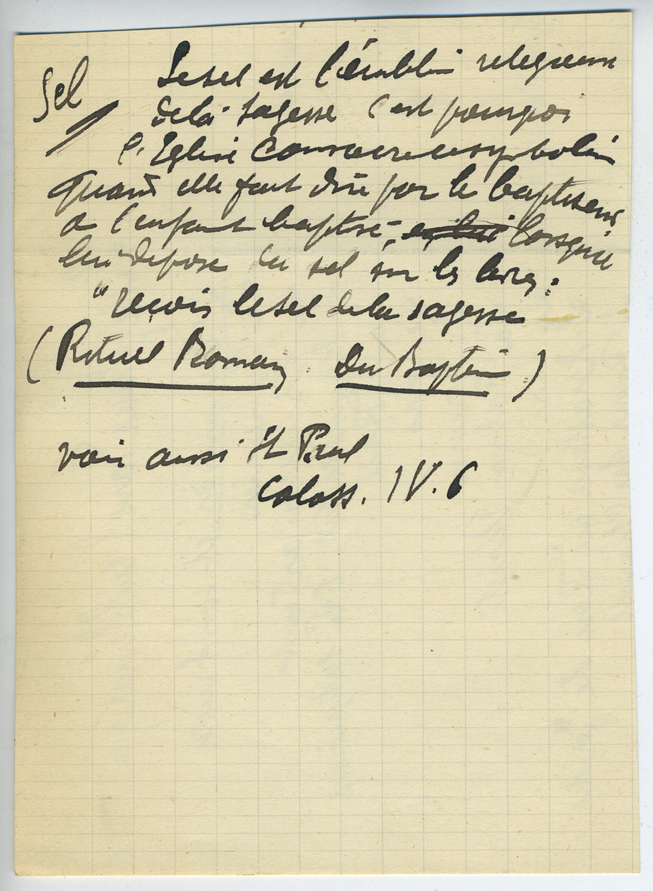 Sel Le sel est l'emblème religieux
de la Sagesse c'est pourquoi
l'Eglise consacre ce symbolisme
quand elle fait dire par le baptiseur
à l'enfant baptisé, lorsqu'il
lui dépose du sel sur les lèvres:
"reçois le sel de la sagesse
(Rituel Romain Du Baptême)
voir aussi St Paul
Coloss. IV. 6